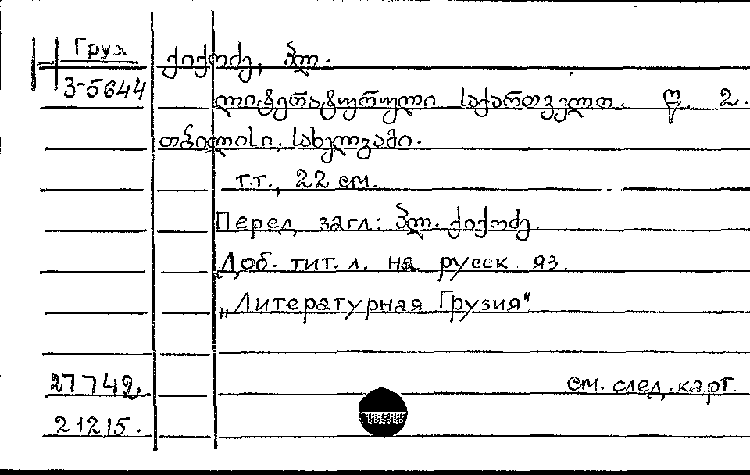 Груз
3-5644
ქიქოძე, პლ.
ლიტერატურული საქართველო. წ. 2.
თბილისი, სახელგამი.
т.т., 22 см.
Перед загл: პლ. ქიქოძე
Доб. тит. л. на русск яз.
„Литературная Грузия"
27742.
см. след. карт.
21215.